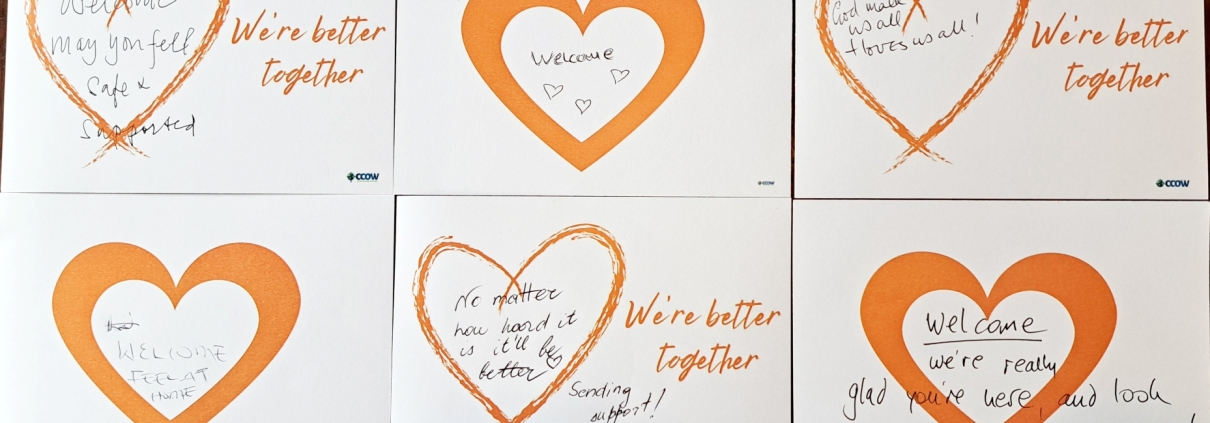 Welcome
may you fell
Safe &
Supported
We're better
together
CCOW
Welcome
CCOW
God made
us all
+ loves us all!
We're better
together
CCOW
WELCOME
FEEL AT
HOME
No matter
how hard it
is it'll be
better
Sending
support!
We're better
together
Welcome
we're really
glad you're here, and look